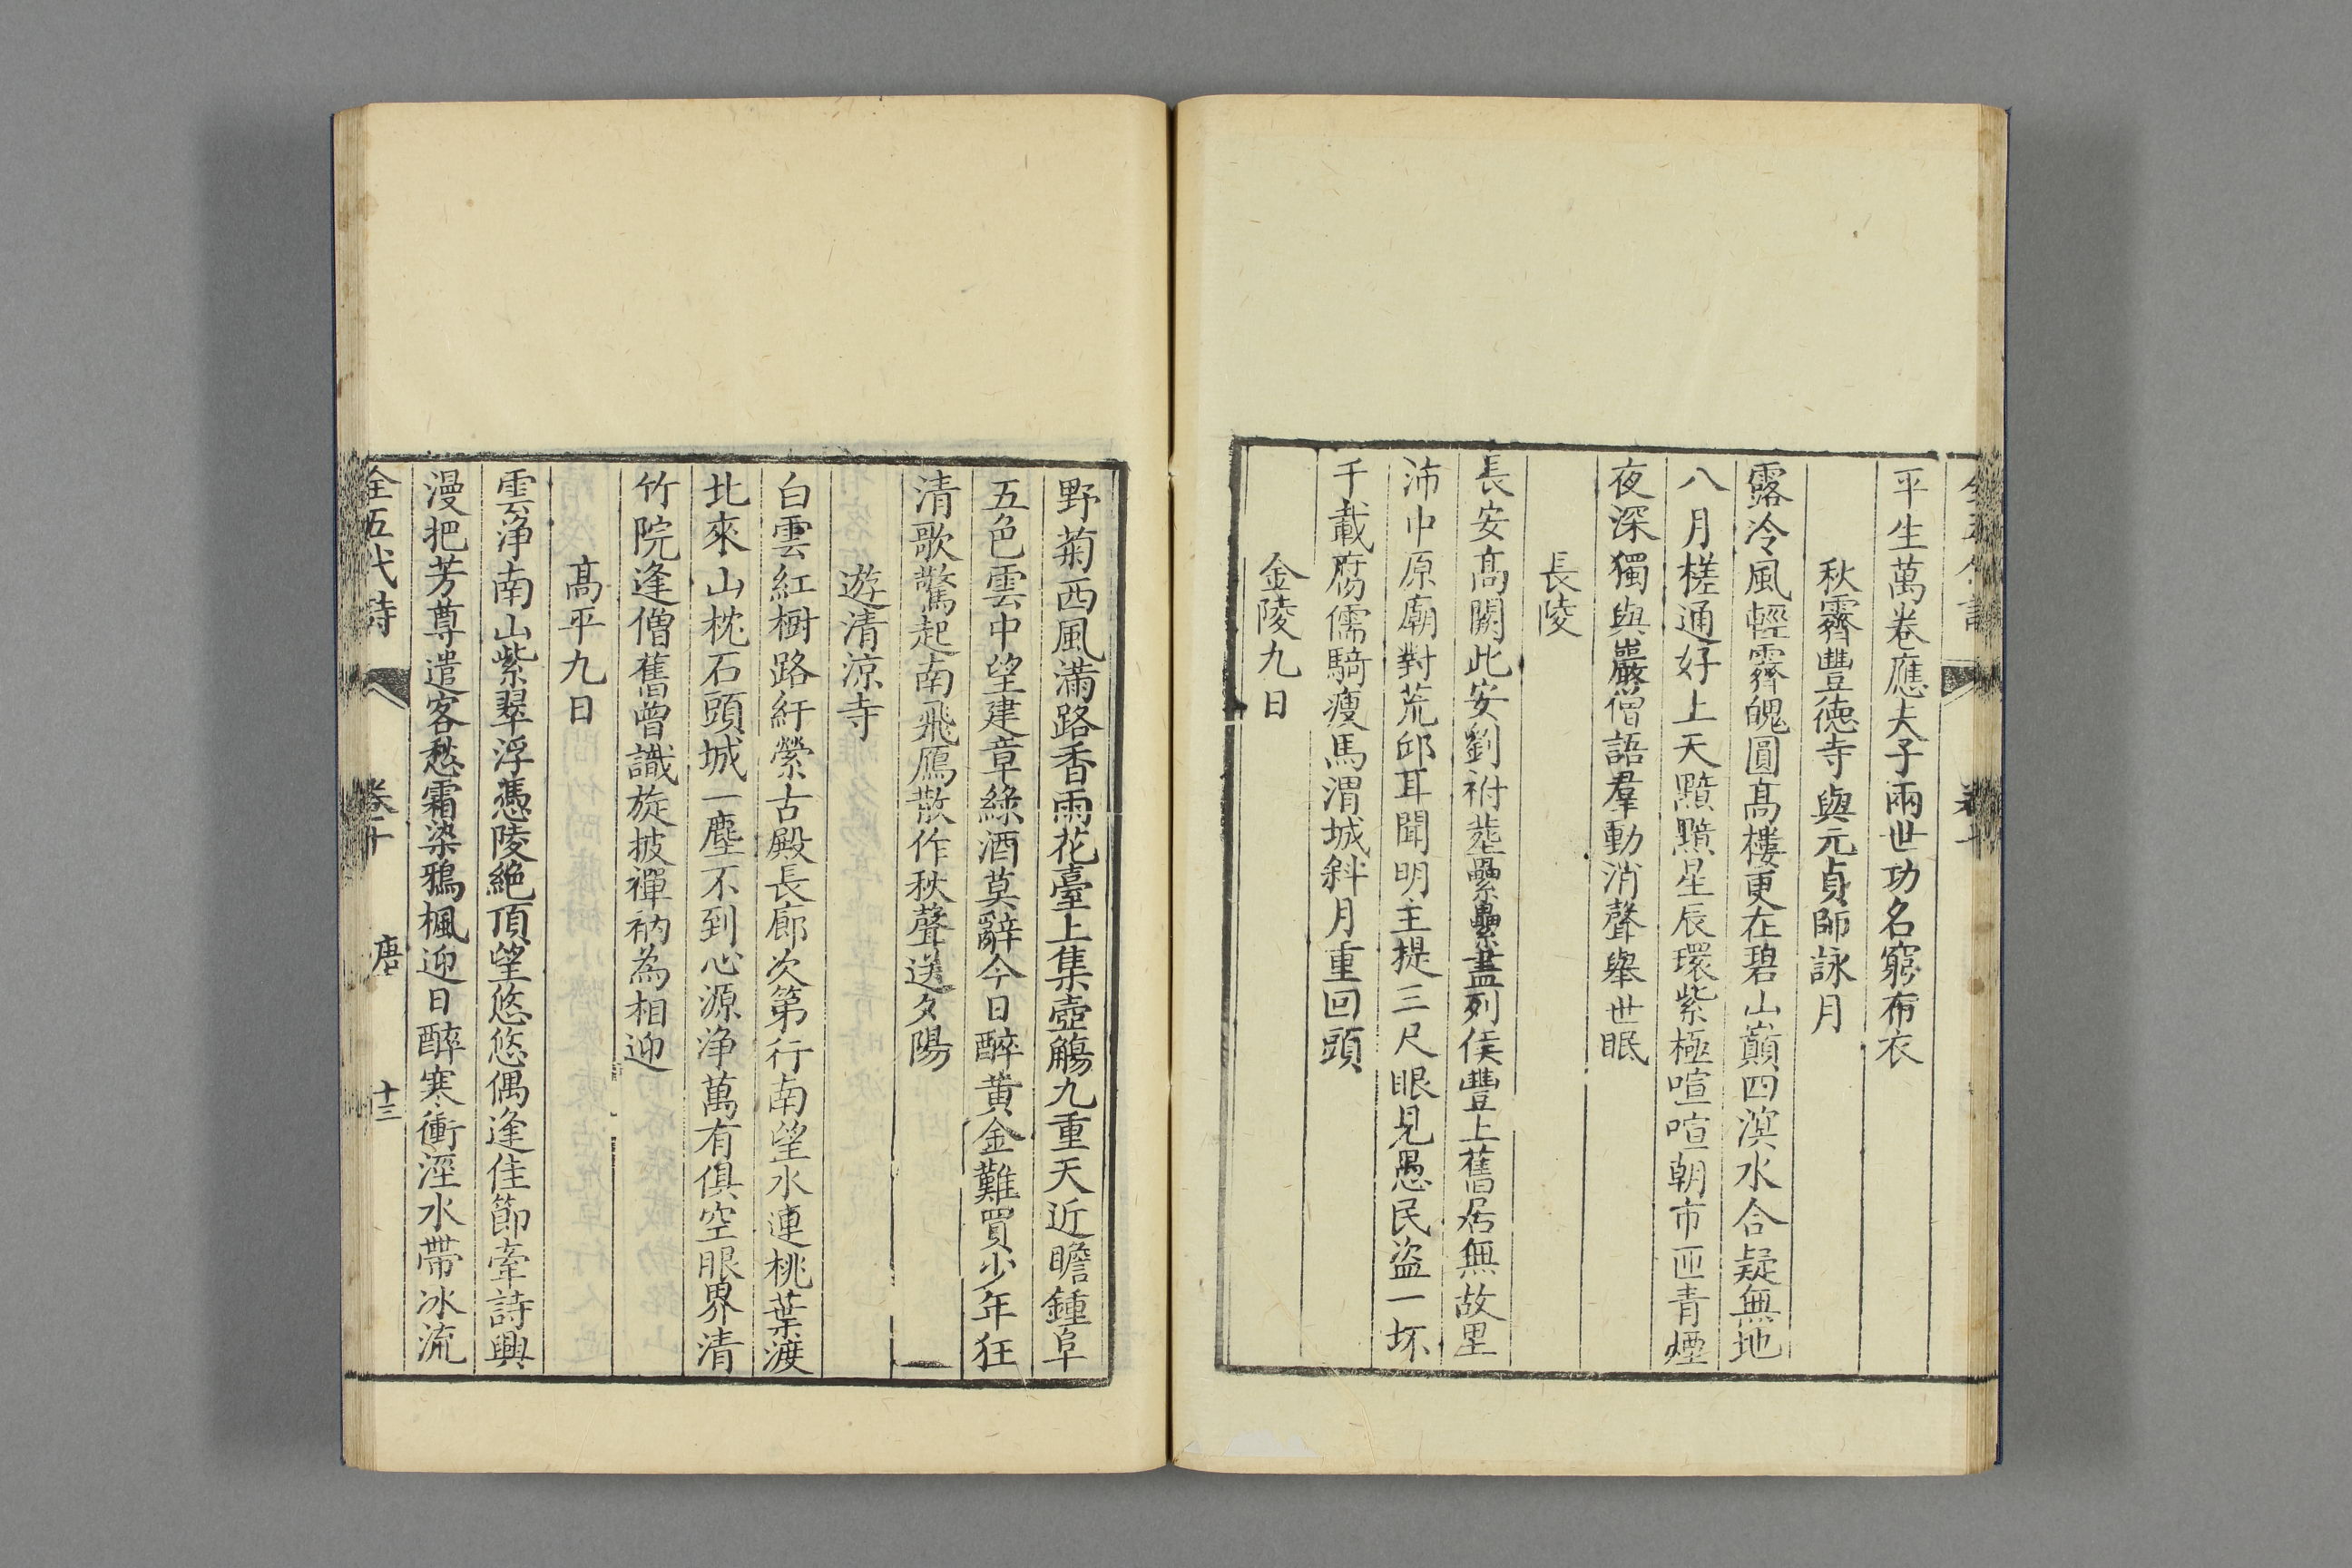 平生萬卷應夫子兩世功名窮布衣
秋霽豐德寺與元貞師詠月
露冷風輕霽魄圓高樓更在碧山巔四溟水合疑無地
八月槎通好上天黯黯星辰環紫極喧喧朝市匝青煙
夜深獨與巖僧語羣動消聲舉世眠
長陵
長安高闕此安劉祔塟纍纍盡列侯豐上舊居無故里
沛中原廟對荒邱耳聞明主提三尺眼見愚民盜一坏
千載腐儒騎瘦馬渭城斜月重回頭
金陵九日
野菊西風滿路香雨花臺上集壺觴九重天近瞻鍾阜
五色雲中望建章綠酒莫辭今日醉黃金難買少年狂
清歌驚起南飛鴈散作秋聲送夕陽
遊清涼寺
白雲紅樹路紆縈古殿長廊次第行南望水連桃葉渡
北來山枕石頭城一塵不到心源淨萬有俱空眼界清
竹院逢僧舊曾識旋披禪衲為相迎
高平九日
雲淨南山紫翠浮憑陵絕頂望悠悠偶逢佳節牽詩興
漫把芳尊遣客愁霜染鴉楓迎日醉寒衝涇水帶冰流
全五代詩 卷十 唐 十三